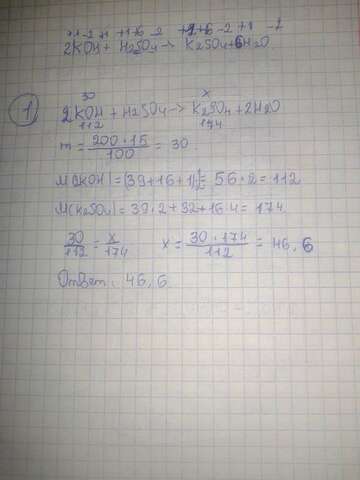 +1 -2 +1 +1 +6 -2 +1 +6 -2 +1 -2
2KOH + H2SO4 → K2SO4 + 6H2O
30 x
1 2KOH + H2SO4 → K2SO4 + 2H2O
112 174
m = 200 · 15 / 100 = 30
M(KOH) = (39+16+1)·2 = 56 · 2 = 112
M(K2SO4) = 39 · 2 + 32 + 16 · 4 = 174
30/112 = x/174 x = 30 · 174 / 112 = 46,6
Ответ: 46,6.